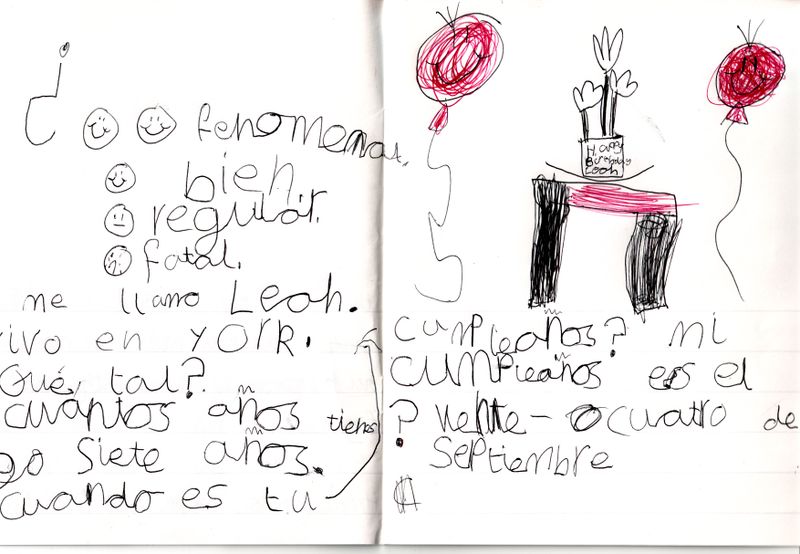 ¿
fenomenal.
bien.
regular.
fatal.
me llamo Leah.
ivo en YORK.
Qué, tal?
cuántos años tienes
go siete años.
cuando es tu
Happy
Birthday
Leah
cumpleaños? mi
cumpleaños es el
? viente-cuatro de
septiembre